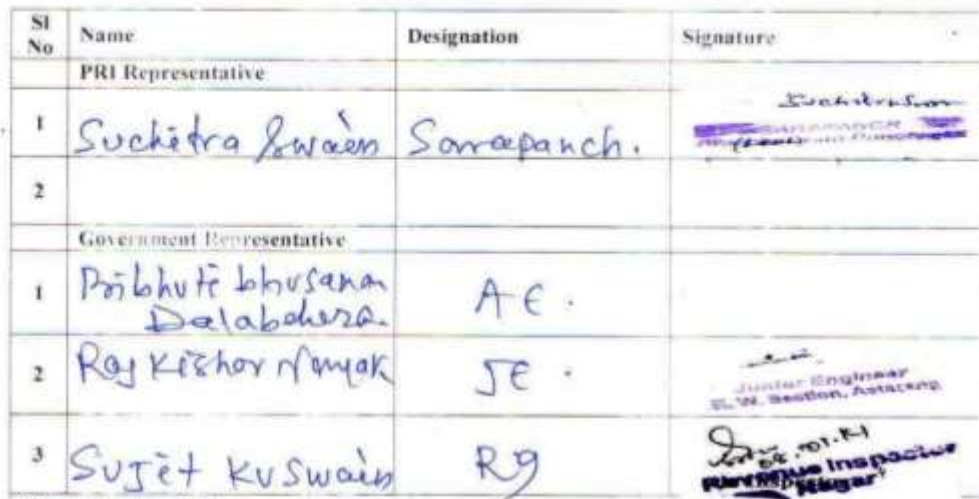 Sl No Name Designation Signature
PRI Representative
1 Suchitra Swain Sarapanch. Suchitra Swain
SARAPANCH
2
Government Representative
1 Bibhuti bhusana Dalabehera. AE.
2 Raj Kishor Nayak JE.
Junior Engineer
R.W. Section, Astarang
3 Sujit Ku Swain RI
Revenue Inspector
Nagar